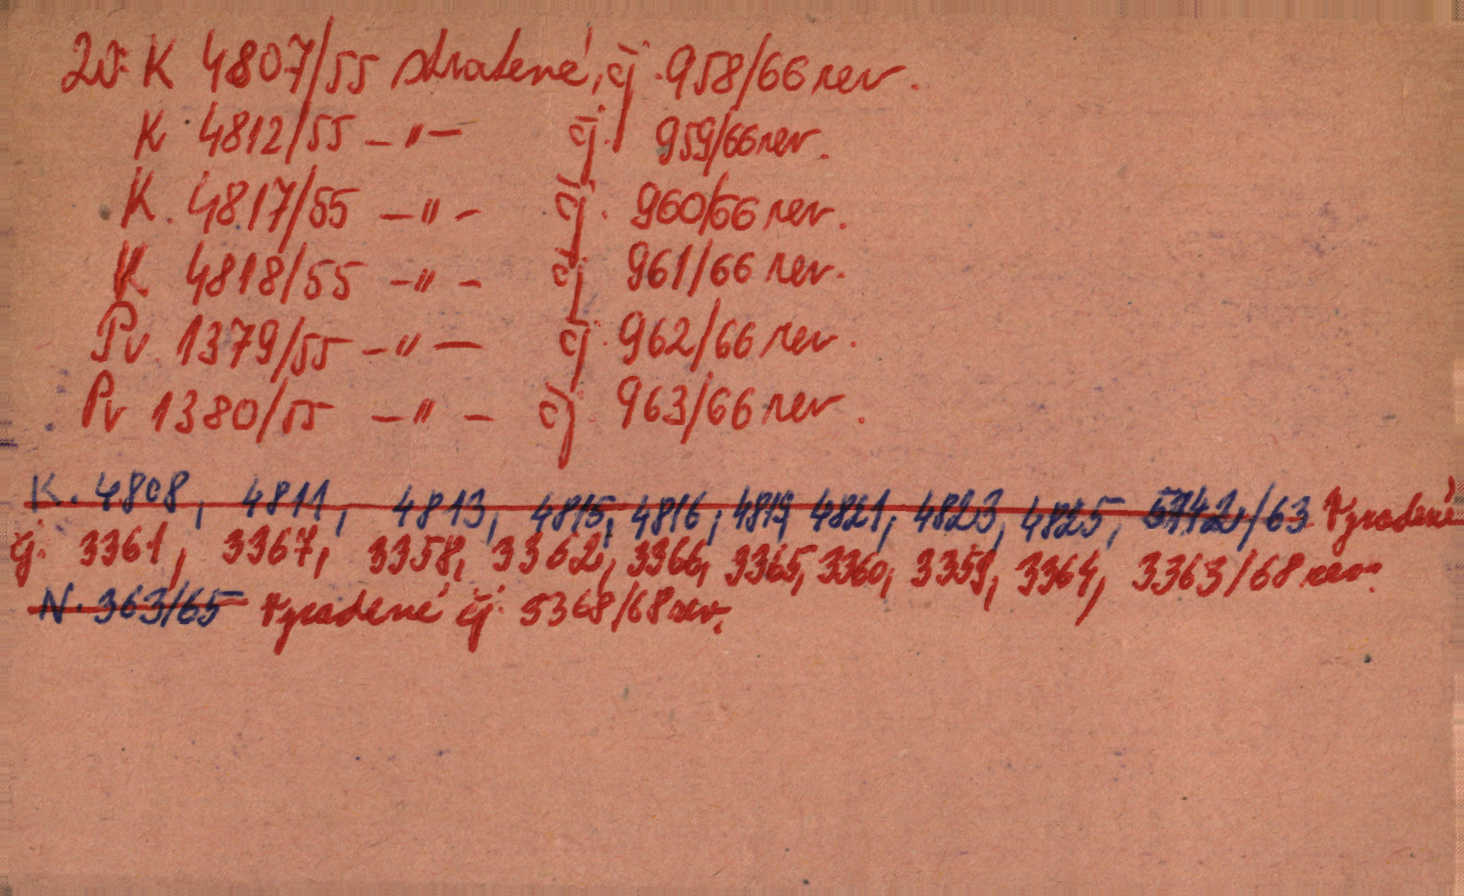 K 4807/55 stratené, čj. 958/66 rev.
K 4812/55 -"- čj. 959/66 rev.
K. 4817/55 -"- čj. 960/66 rev.
K 4818/55 -"- čj 961/66 rev.
Pv 1379/55 -"- čj. 962/66 rev.
Pv 1380/55 -"- čj. 963/66 rev.
K. 4808, 4811, 4813, 4815, 4816, 4819 4821, 4823, 4825, 5742/63 Vyradené
čj. 3361, 3367, 3358, 3362, 3366, 3365, 3360, 3359, 3364, 3363/68 rev.
N. 363/65 Vyradené čj. 3368/68 rev.